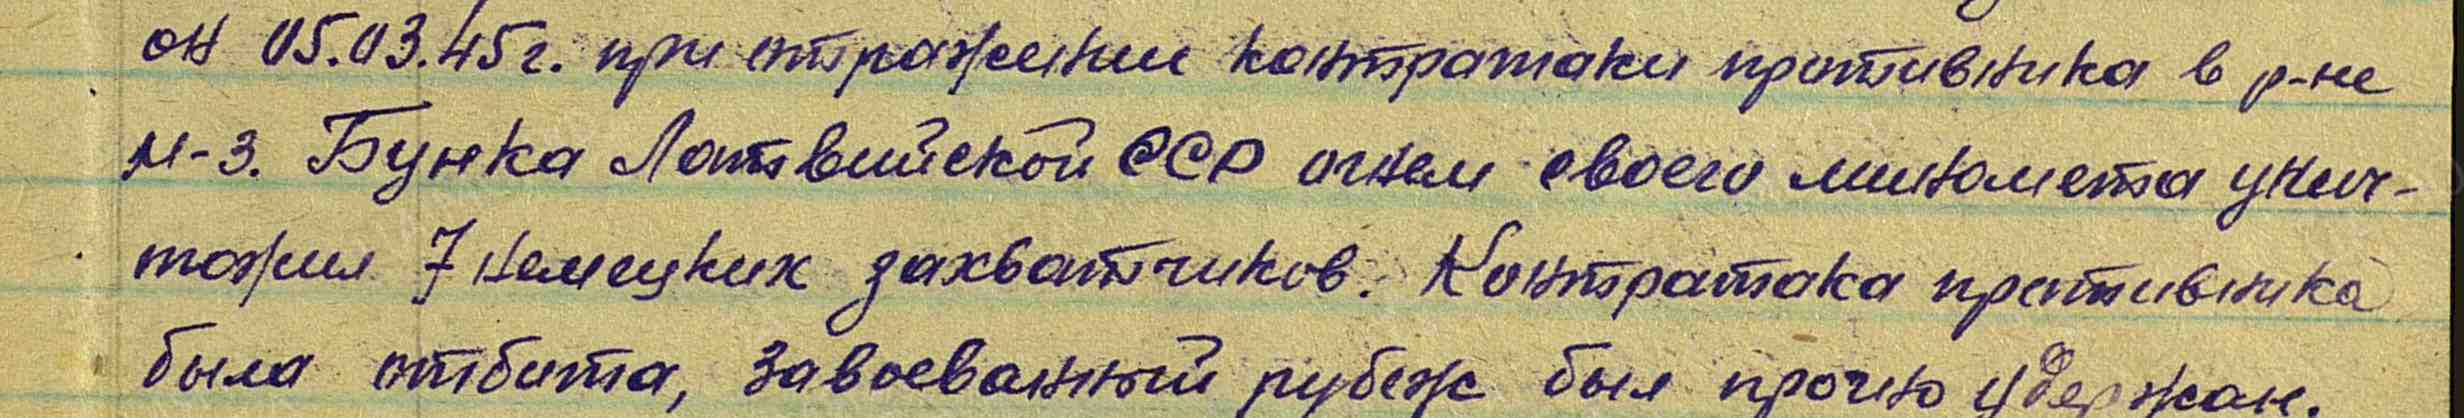 он 05.03.45г. при отражении контратаки противника в р-не
м-з. Бунка Латвийской ССР огнем своего миномета унич-
тожил 7 немецких захватчиков. Контратака противника
была отбита, завоеванный рубеж был прочно удержан.